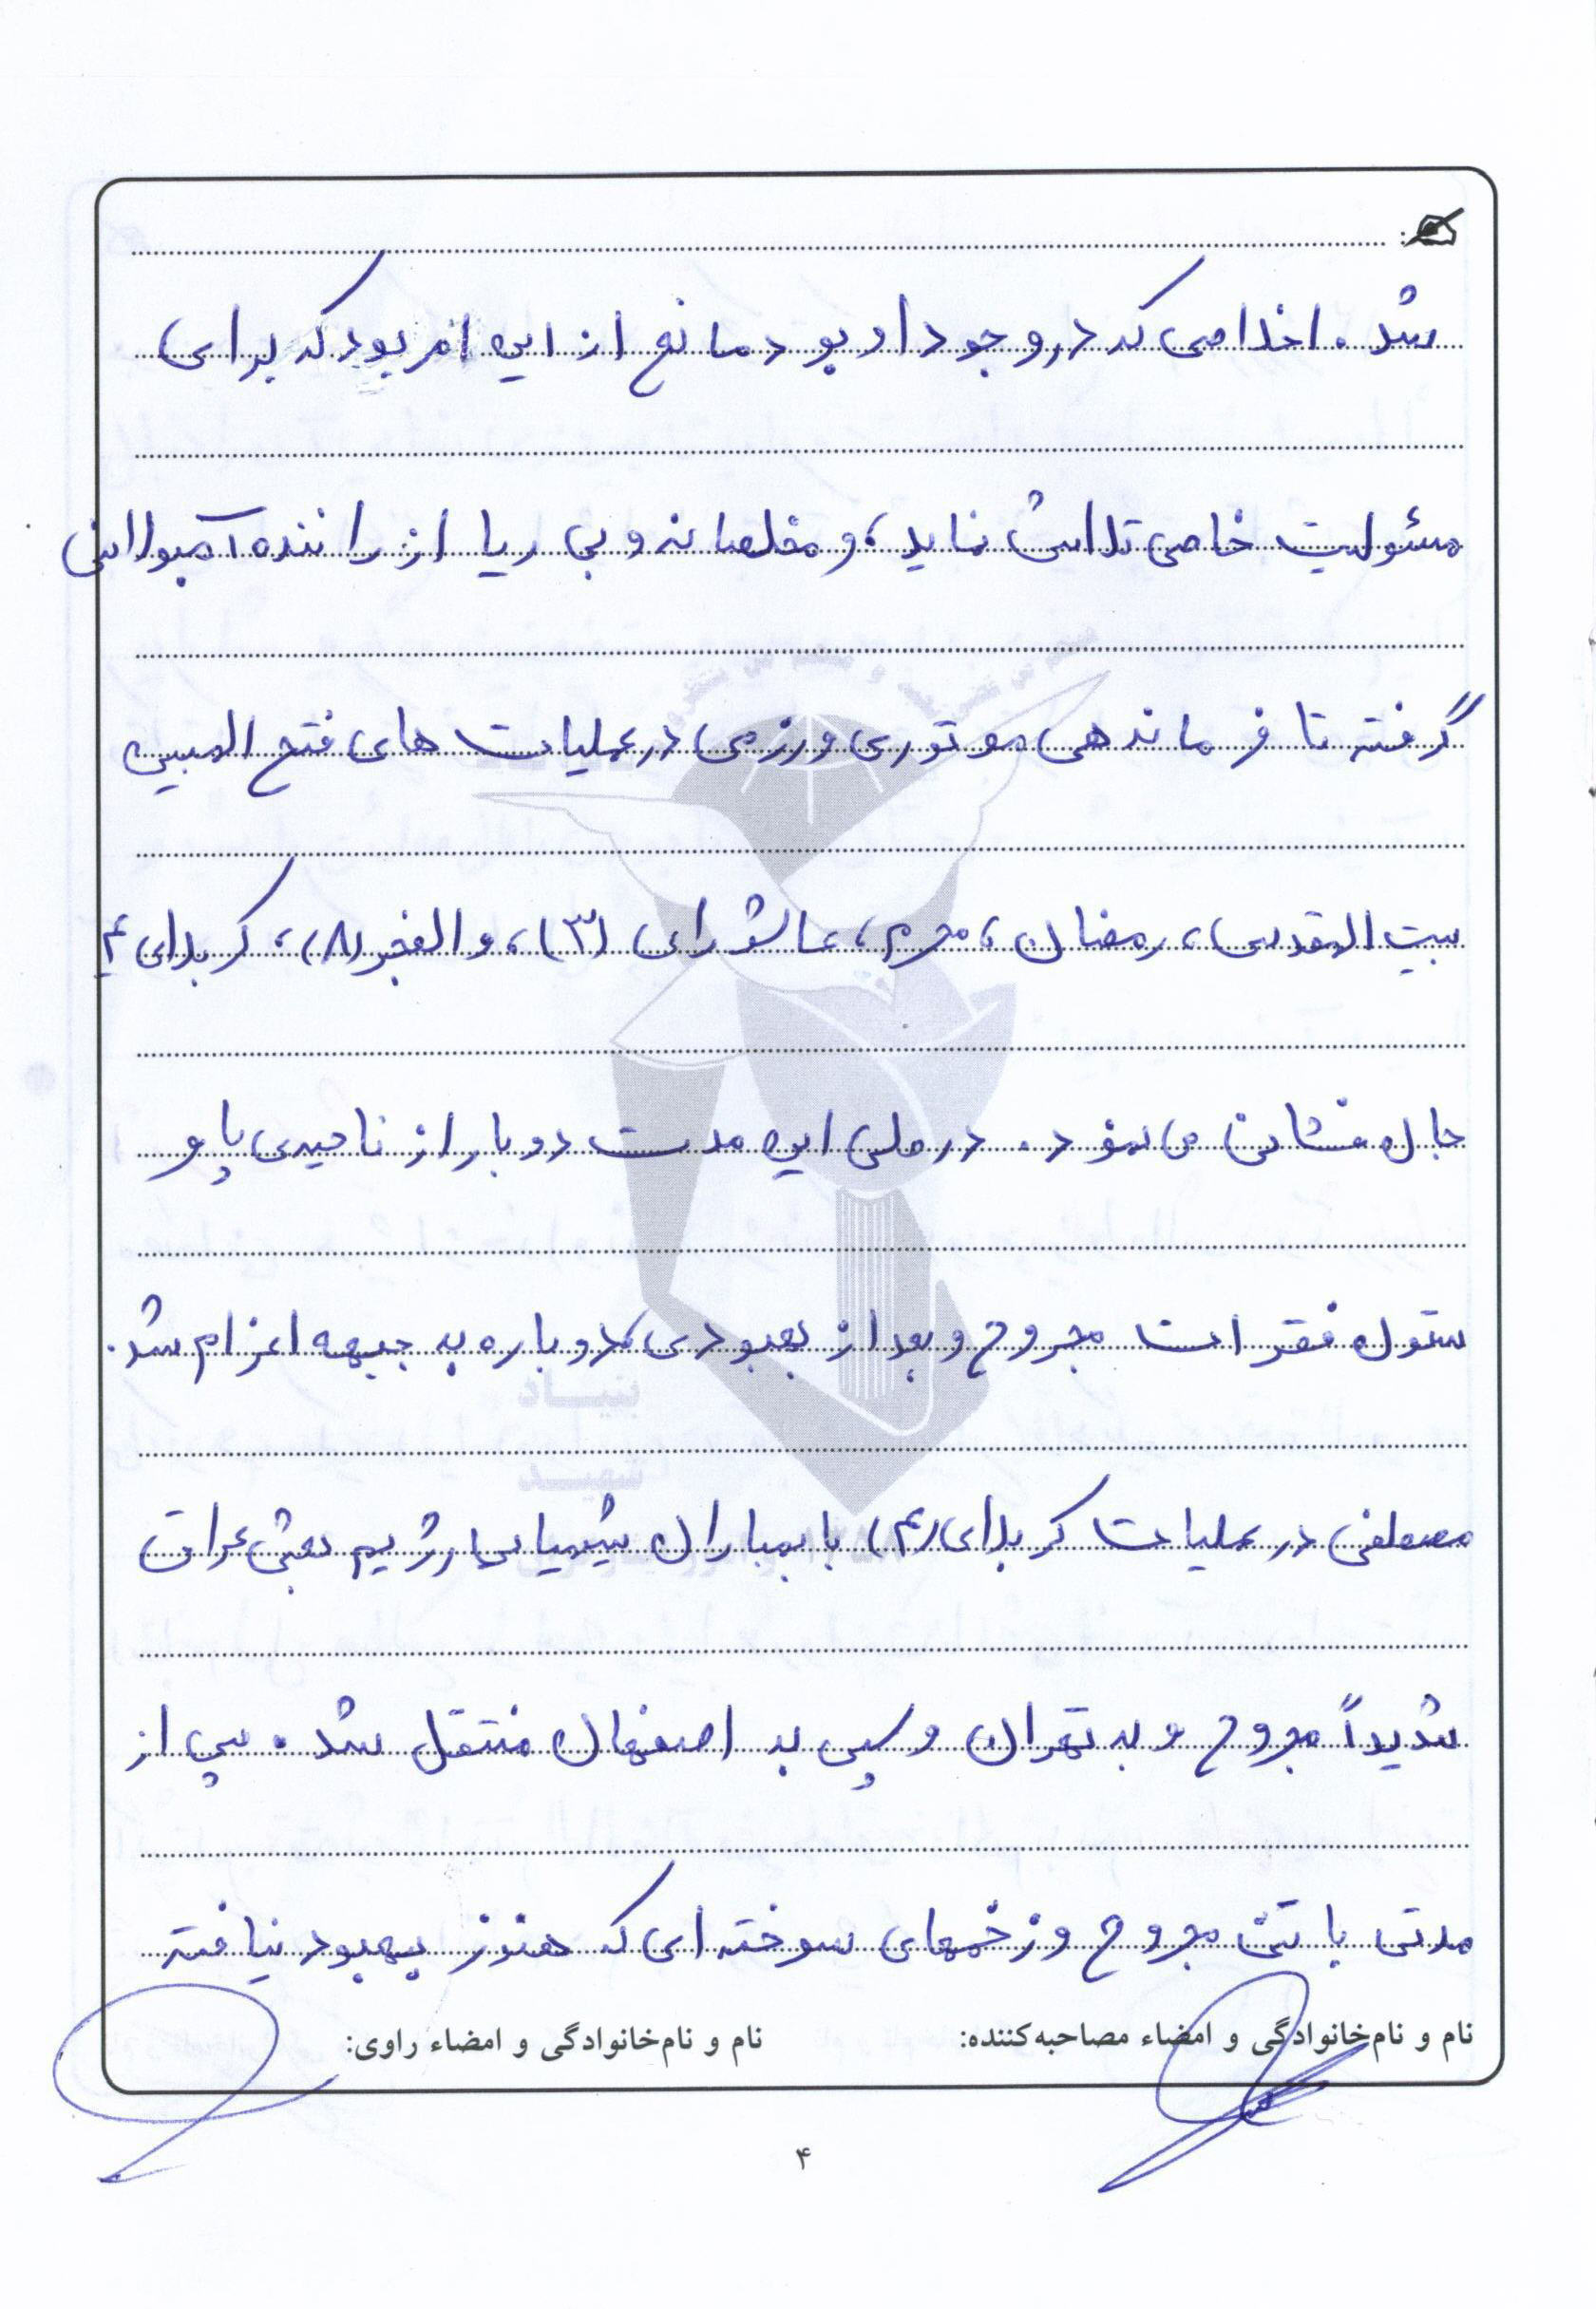 شد. اخلاصی که در وجود او بود مانع از این امر بود که برای
مسئولیت خاصی تلاش نماید، و مخلصانه و بی ریا از راننده آمبولانس
گرفته تا فرماندهی موتوری ورزمی در عملیات های فتح المبین
بیت المقدس، رمضان، محرم، عاشورای (۳)، والفجر (۸)، کربلای ۴
جان فشانی می نمود. در طی این مدت دوبار از ناحیه‌ی پا و
ستون فقرات مجروح و بعد از بهبودی دوباره به جبهه اعزام شد.
مصطفی در عملیات کربلای (۴) با بمباران شیمیایی رژیم بعثی عراق
شدیداً مجروح و به تهران و سپس به اصفهان منتقل شد. پس از
مدتی با تنی مجروح و زخمهای سوخته ای که هنوز بهبود نیافته
نام و نام‌خانوادگی و امضاء مصاحبه‌کننده: نام و نام‌خانوادگی و امضاء راوی:
۴
بنیاد
شهید